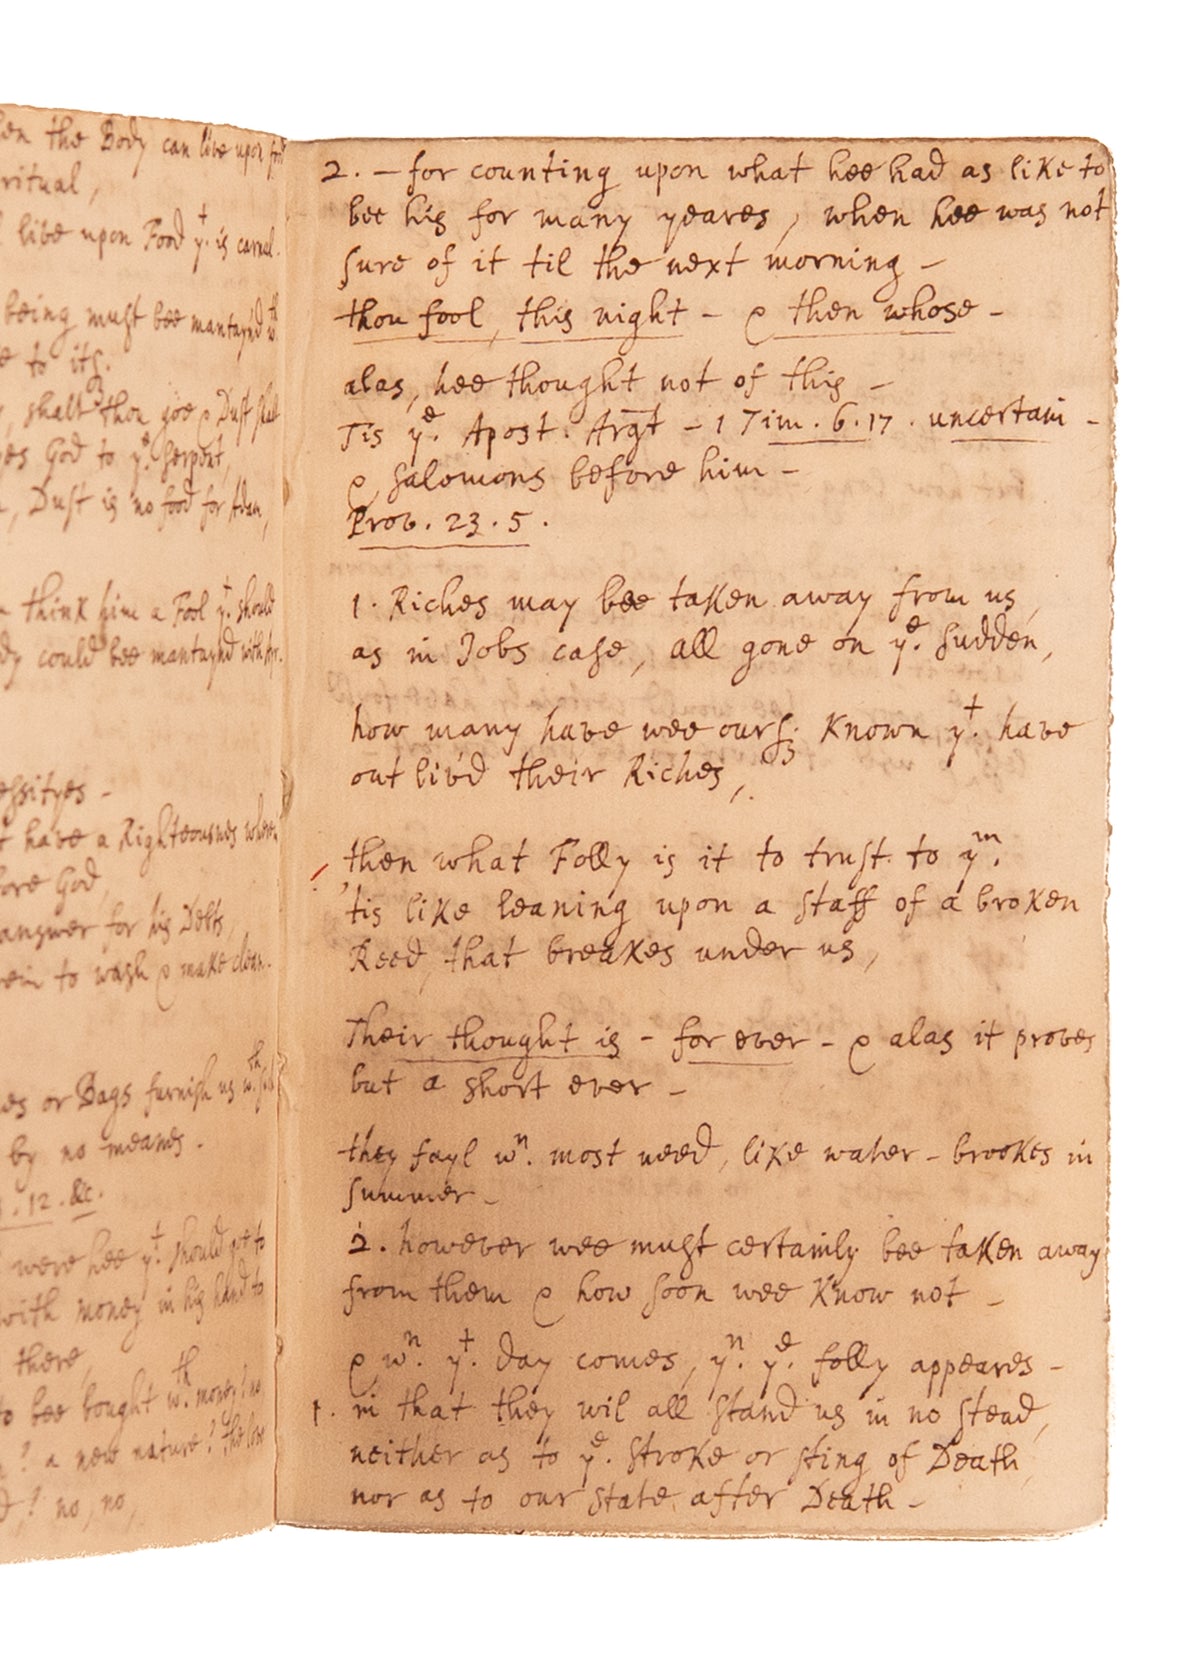 en the Body can live upon food
ritual,
live upon Food yt. is carnal.
being must bee mantaynd wth.
to its.
shalt thou goe & Dust shal
es God to ye. Serpent,
Dust is no food for Adam,
think him a Fool yt. should
dy could bee mantaynd with Ayr.
essityes -
have a Righteousnes wherein
fore God,
answer for his Debts,
rein to wash & make clean.
es or Bags furnish us wth. such
by no meanes.
. 12. &c.
were hee yt. should goe to
with money in his hand to
there,
to bee bought wth. money? no
? a new nature? the love
? no, no,
2. - for counting upon what hee had as like to
bee his for many yeares, when hee was not
sure of it til the next morning -
thou fool, this night - & then whose -
alas, hee thought not of this -
Tis ye. Apost. Argt - 1 Tim. 6. 17. uncertain -
& Salomons before him -
Prov. 23. 5.
1. Riches may bee taken away from us,
as in Jobs case, all gone on ye. sudden,
how many have wee ours. known yt. have
out liv'd their Riches,
then what Folly is it to trust to ym.
'tis like leaning upon a staff of a broken
Reed, that breakes under us,
Their thought is - for ever - & alas it proves
but a short ever -
they fayl wn. most need, like water-brookes in
summer -
2. however wee must certainly bee taken away
from them & how soon wee know not -
& wn. yt. day comes, yn. ye. folly appeares -
1. in that they wil all stand us in no stead,
neither as to ye. stroke or sting of Death
nor as to our state after Death -